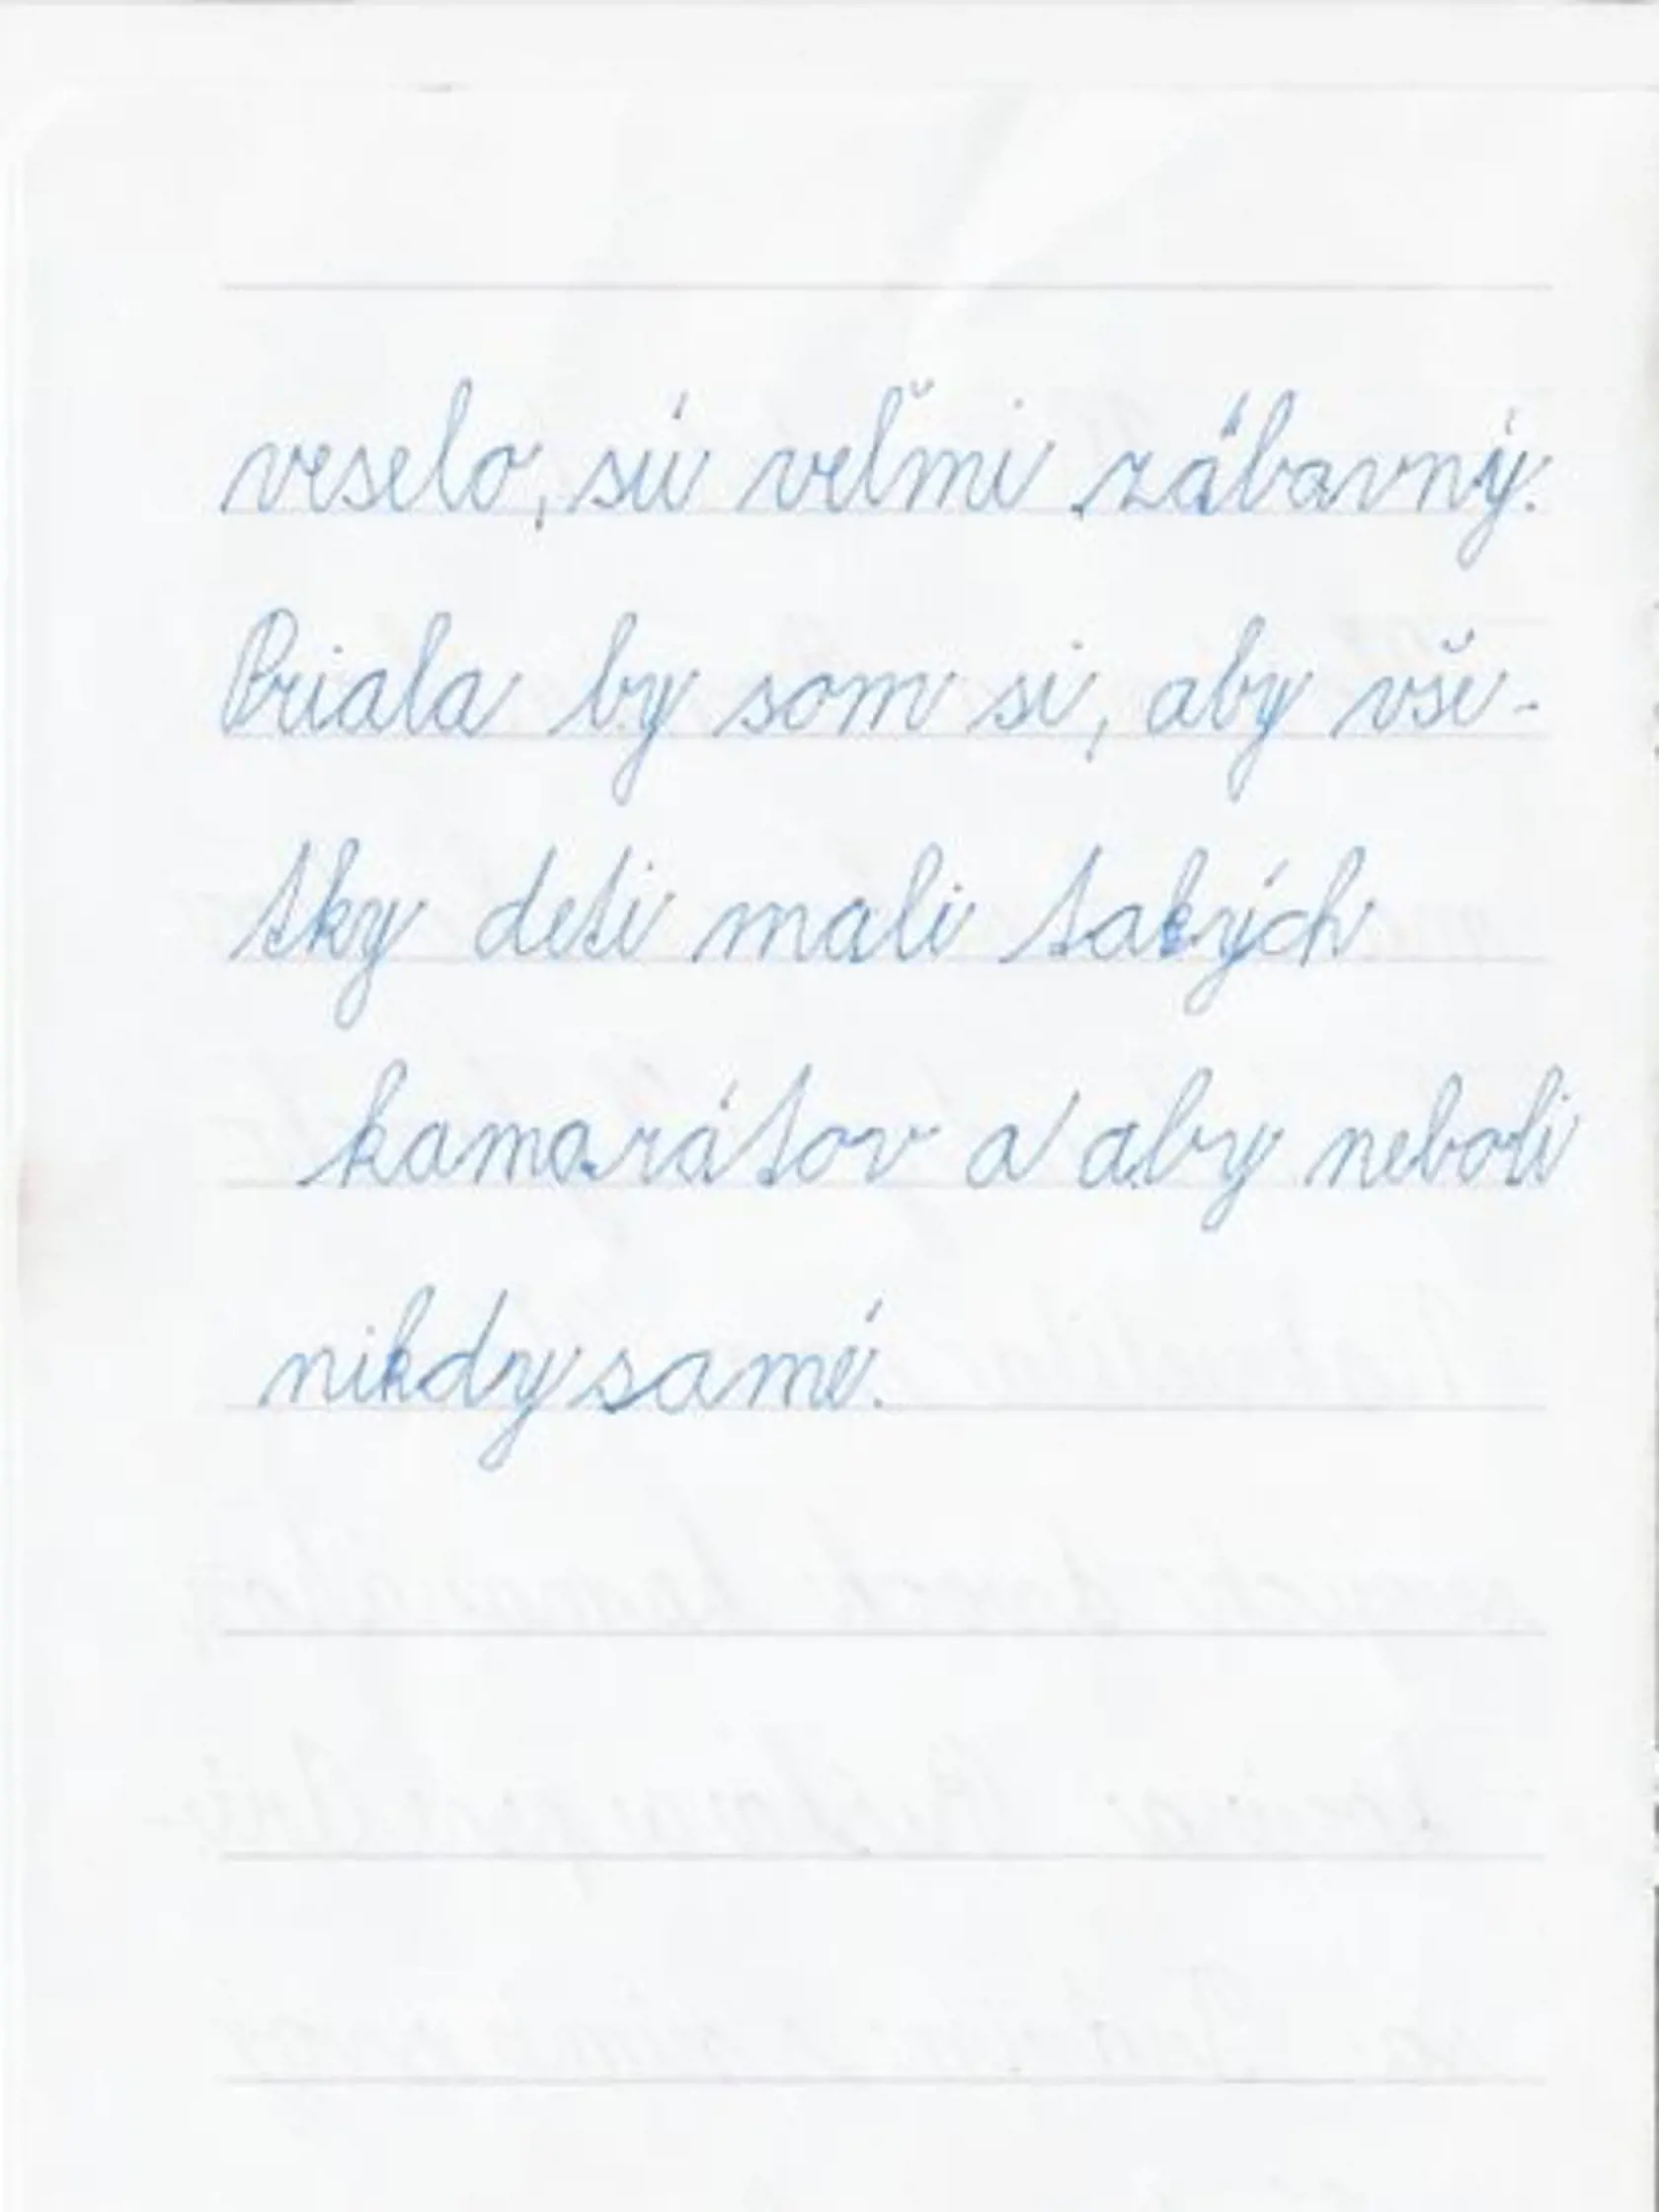 veselo, sú veľmi zábavný.
Priala by som si, aby vši-
tky deti mali takých
kamarátov a aby neboli
nikdy samé.